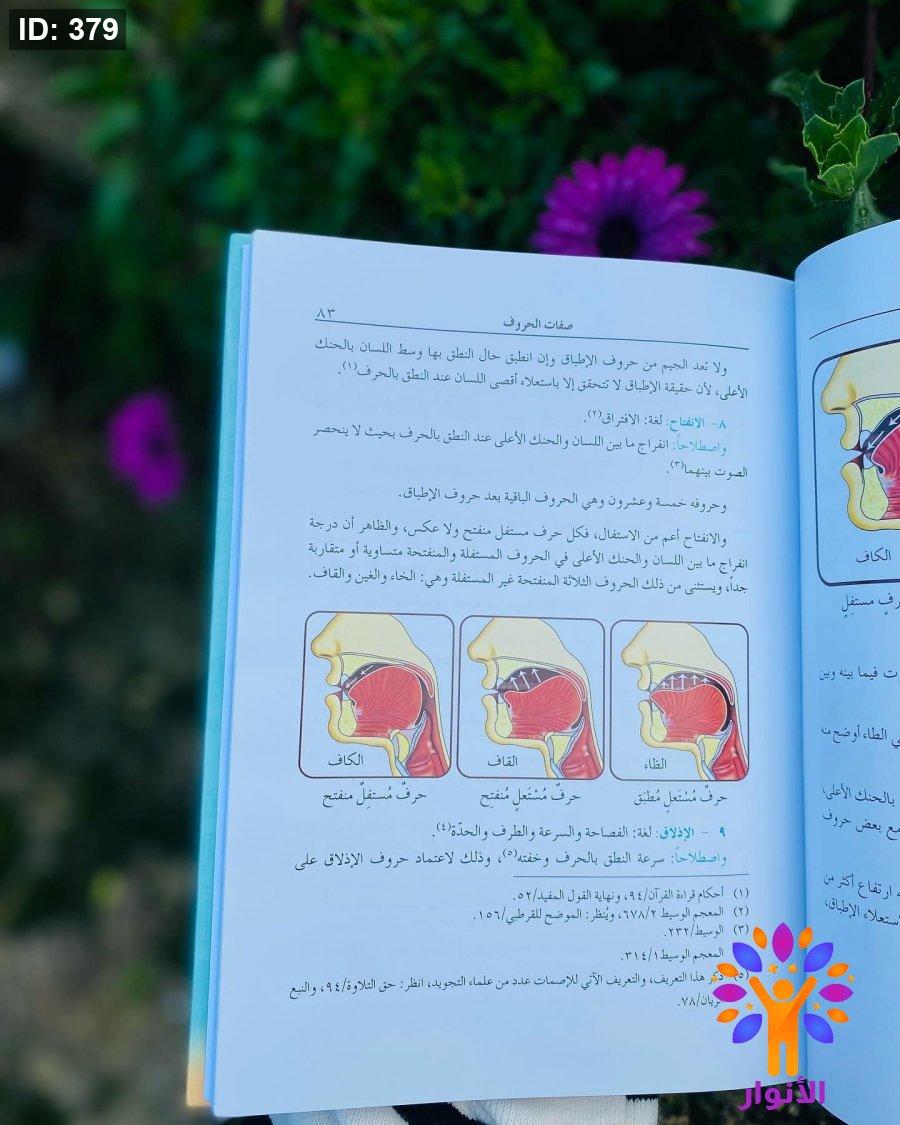 ID: 379
صفات الحروف
٨٣
ولا تعد الجيم من حروف الإطباق وإن انطبق حال النطق بها وسط اللسان بالحنك
الأعلى، لأن حقيقة الإطباق لا تتحقق إلا باستعلاء أقصى اللسان عند النطق بالحرف(١).
٨- الانفتاح: لغة: الافتراق(٢).
واصطلاحاً: انفراج ما بين اللسان والحنك الأعلى عند النطق بالحرف بحيث لا ينحصر
الصوت بينهما(٣).
وحروفه خمسة وعشرون وهي الحروف الباقية بعد حروف الإطباق.
والانفتاح أعم من الاستفال، فكل حرف مستفل منفتح ولا عكس، والظاهر أن درجة
انفراج ما بين اللسان والحنك الأعلى في الحروف المستفلة والمنفتحة متساوية أو متقاربة
جداً، ويستثنى من ذلك الحروف الثلاثة المنفتحة غير المستفلة وهي: الخاء والغين والقاف.
الظاء
القاف
الكاف
حرفٌ مُسْتَعلٍ مُطبَق
حرفٌ مُسْتَعلٍ مُنفتِح
حرفٌ مُستفِلٌ منفتح
٩ - الإذلاق: لغة: الفصاحة والسرعة والطرف والحدّة(٤).
واصطلاحاً: سرعة النطق بالحرف وخفته(٥)، وذلك لاعتماد حروف الإذلاق على
(١) أحكام قراءة القرآن/٩٤، ونهاية القول المفيد/٥٢.
(٢) المعجم الوسيط ٦٧٨/٢، ويُنظر: الموضح للقرطبي/١٥٦.
(٣) الوسيط/٢٣٢.
المعجم الوسيط ٣١٤/١.
(٥) ذكر هذا التعريف، والتعريف الآتي للإصمات عدد من علماء التجويد، انظر: حق التلاوة/٩٤، والنبع
الريان/٧٨.
الكاف
حرفٍ مستفِلٍ
فيما بينه وبين
الطاء أوضح منه
بالحنك الأعلى،
بعض حروف
ارتفاع أكثر من
استعلاء الإطباق،
الأنوار